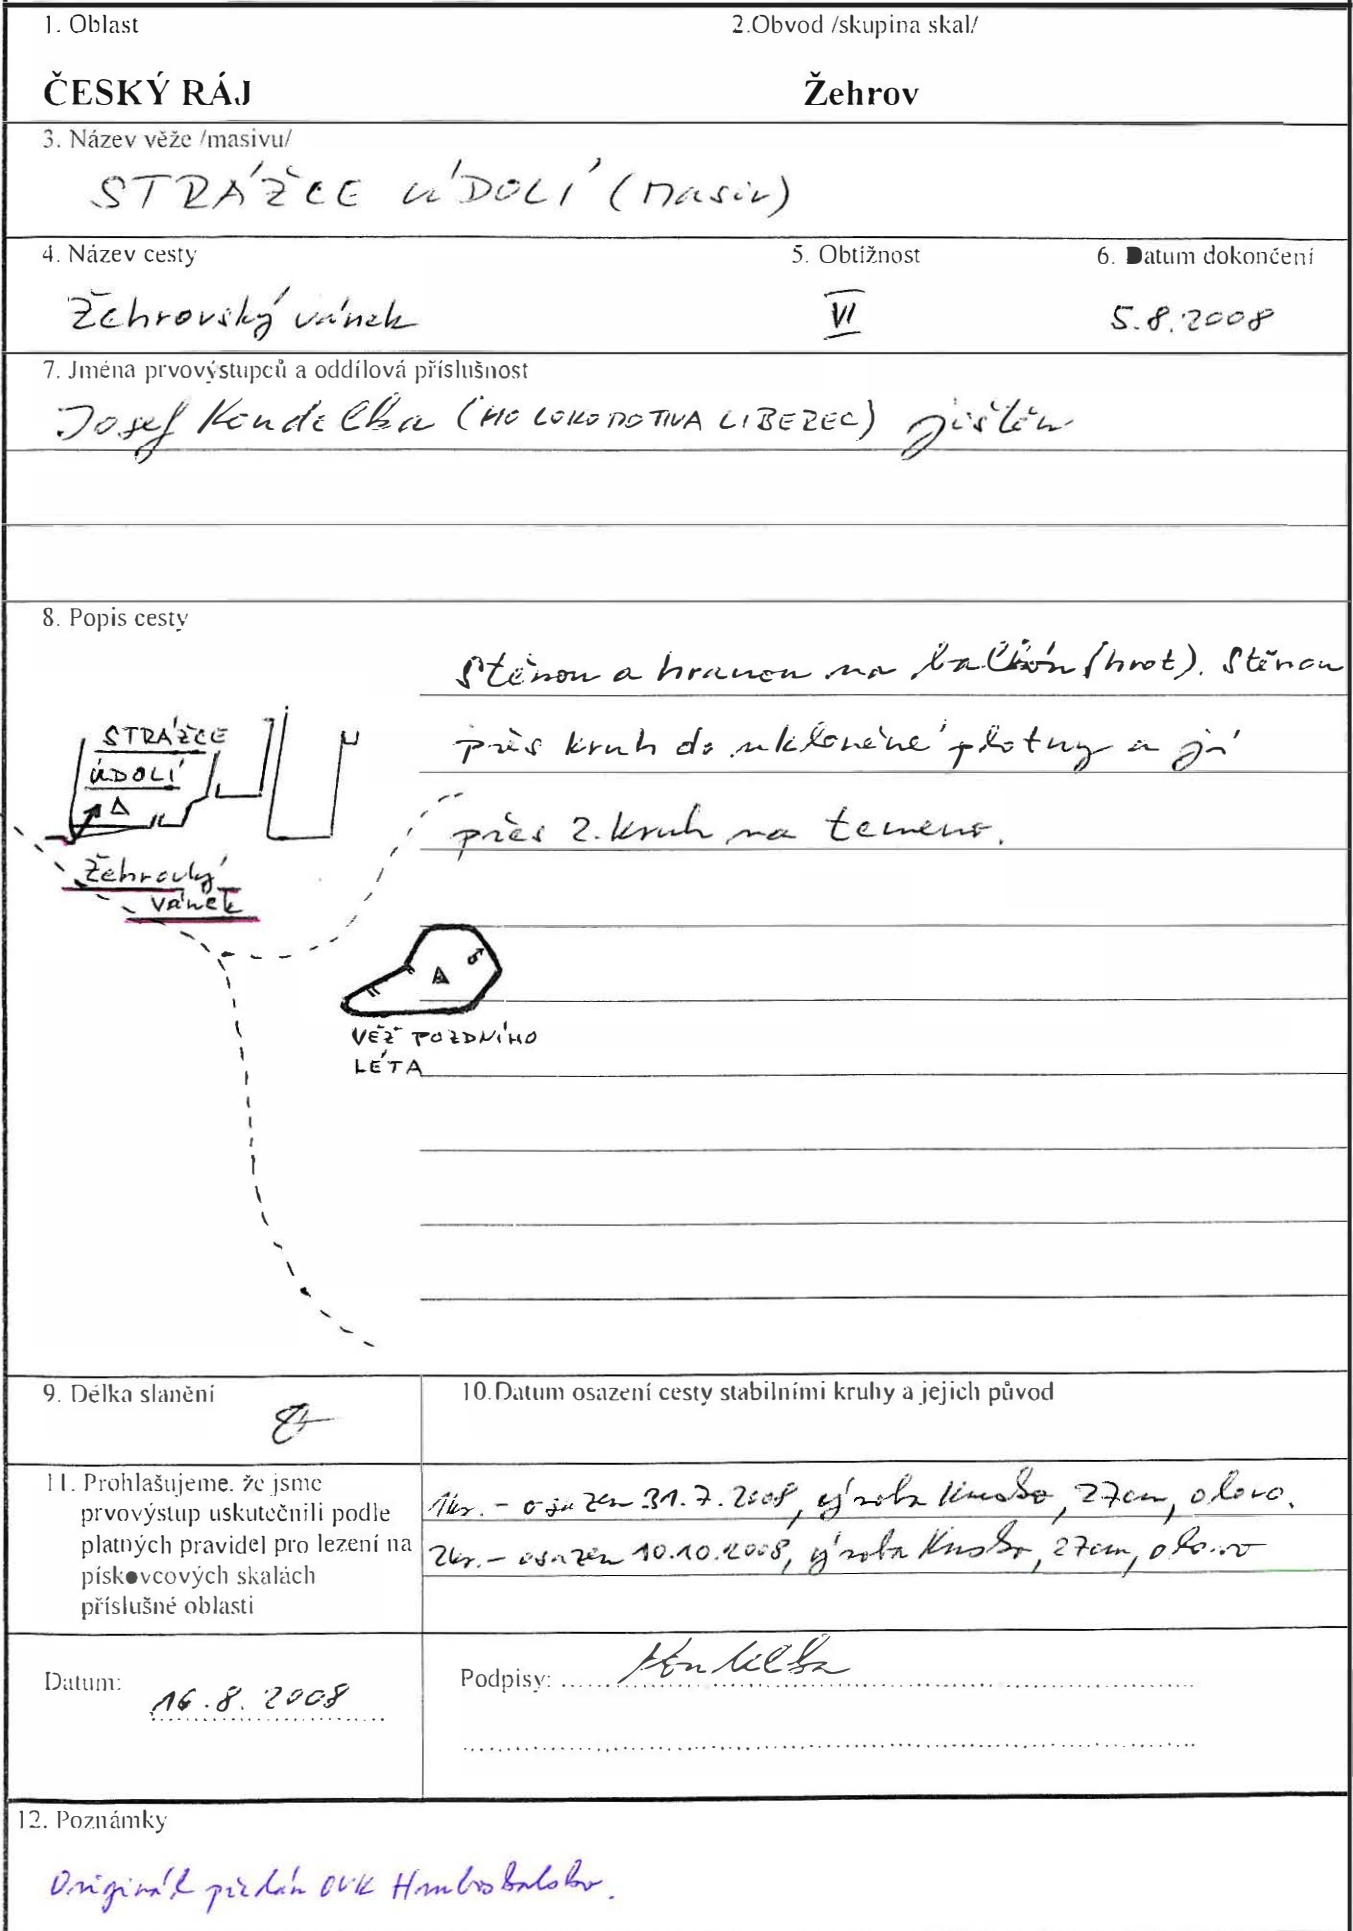 1. Oblast
2.Obvod /skupina skal/
ČESKÝ RÁJ
Žehrov
3. Název věže /masivu/
STRÁŽCE ÚDOLÍ (masiv)
4. Název cesty
5. Obtížnost
6. Datum dokončení
Žehrovský vánek
VI
5.8.2008
7. Jména prvovýstupců a oddílová příslušnost
Josef Kondelka (HO LOKOMOTIVA LIBEREC) jištěn
8. Popis cesty
Stěnou a hranou na balkón (hrot). Stěnou
přes kruh do ukloněné plotny a jí
přes 2. kruh na temeno.
STRÁŽCE
ÚDOLÍ
Žehrovský
vánek
VĚŽ POZDNÍHO
LÉTA
9. Délka slanění
10.Datum osazení cesty stabilními kruhy a jejich původ
11. Prohlašujeme. že jsme
prvovýstup uskutečnili podle
platných pravidel pro lezení na
pískovcových skalách
příslušné oblasti
1kr. - osazen 31.7.2008, výroba 27cm, olovo.
2kr. - osazen 10.10.2008, výroba 27cm, olovo
Datum:
16.8.2008
Podpisy:
Kondelka
12. Poznámky
Originál předán OVK Hruboskalsko.